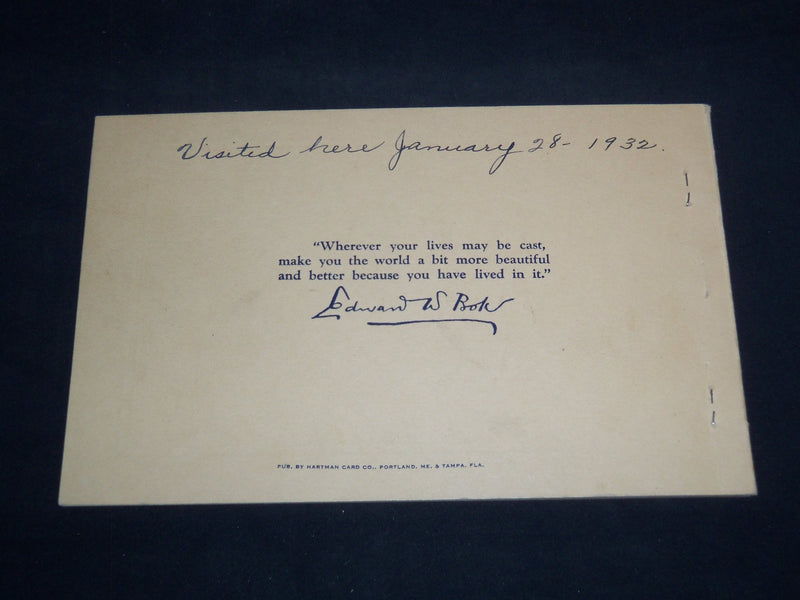 Visited here January 28- 1932.
“Wherever your lives may be cast,
make you the world a bit more beautiful
and better because you have lived in it.”
Edward W Bok
PUB. BY HARTMAN CARD CO., PORTLAND, ME. & TAMPA, FLA.